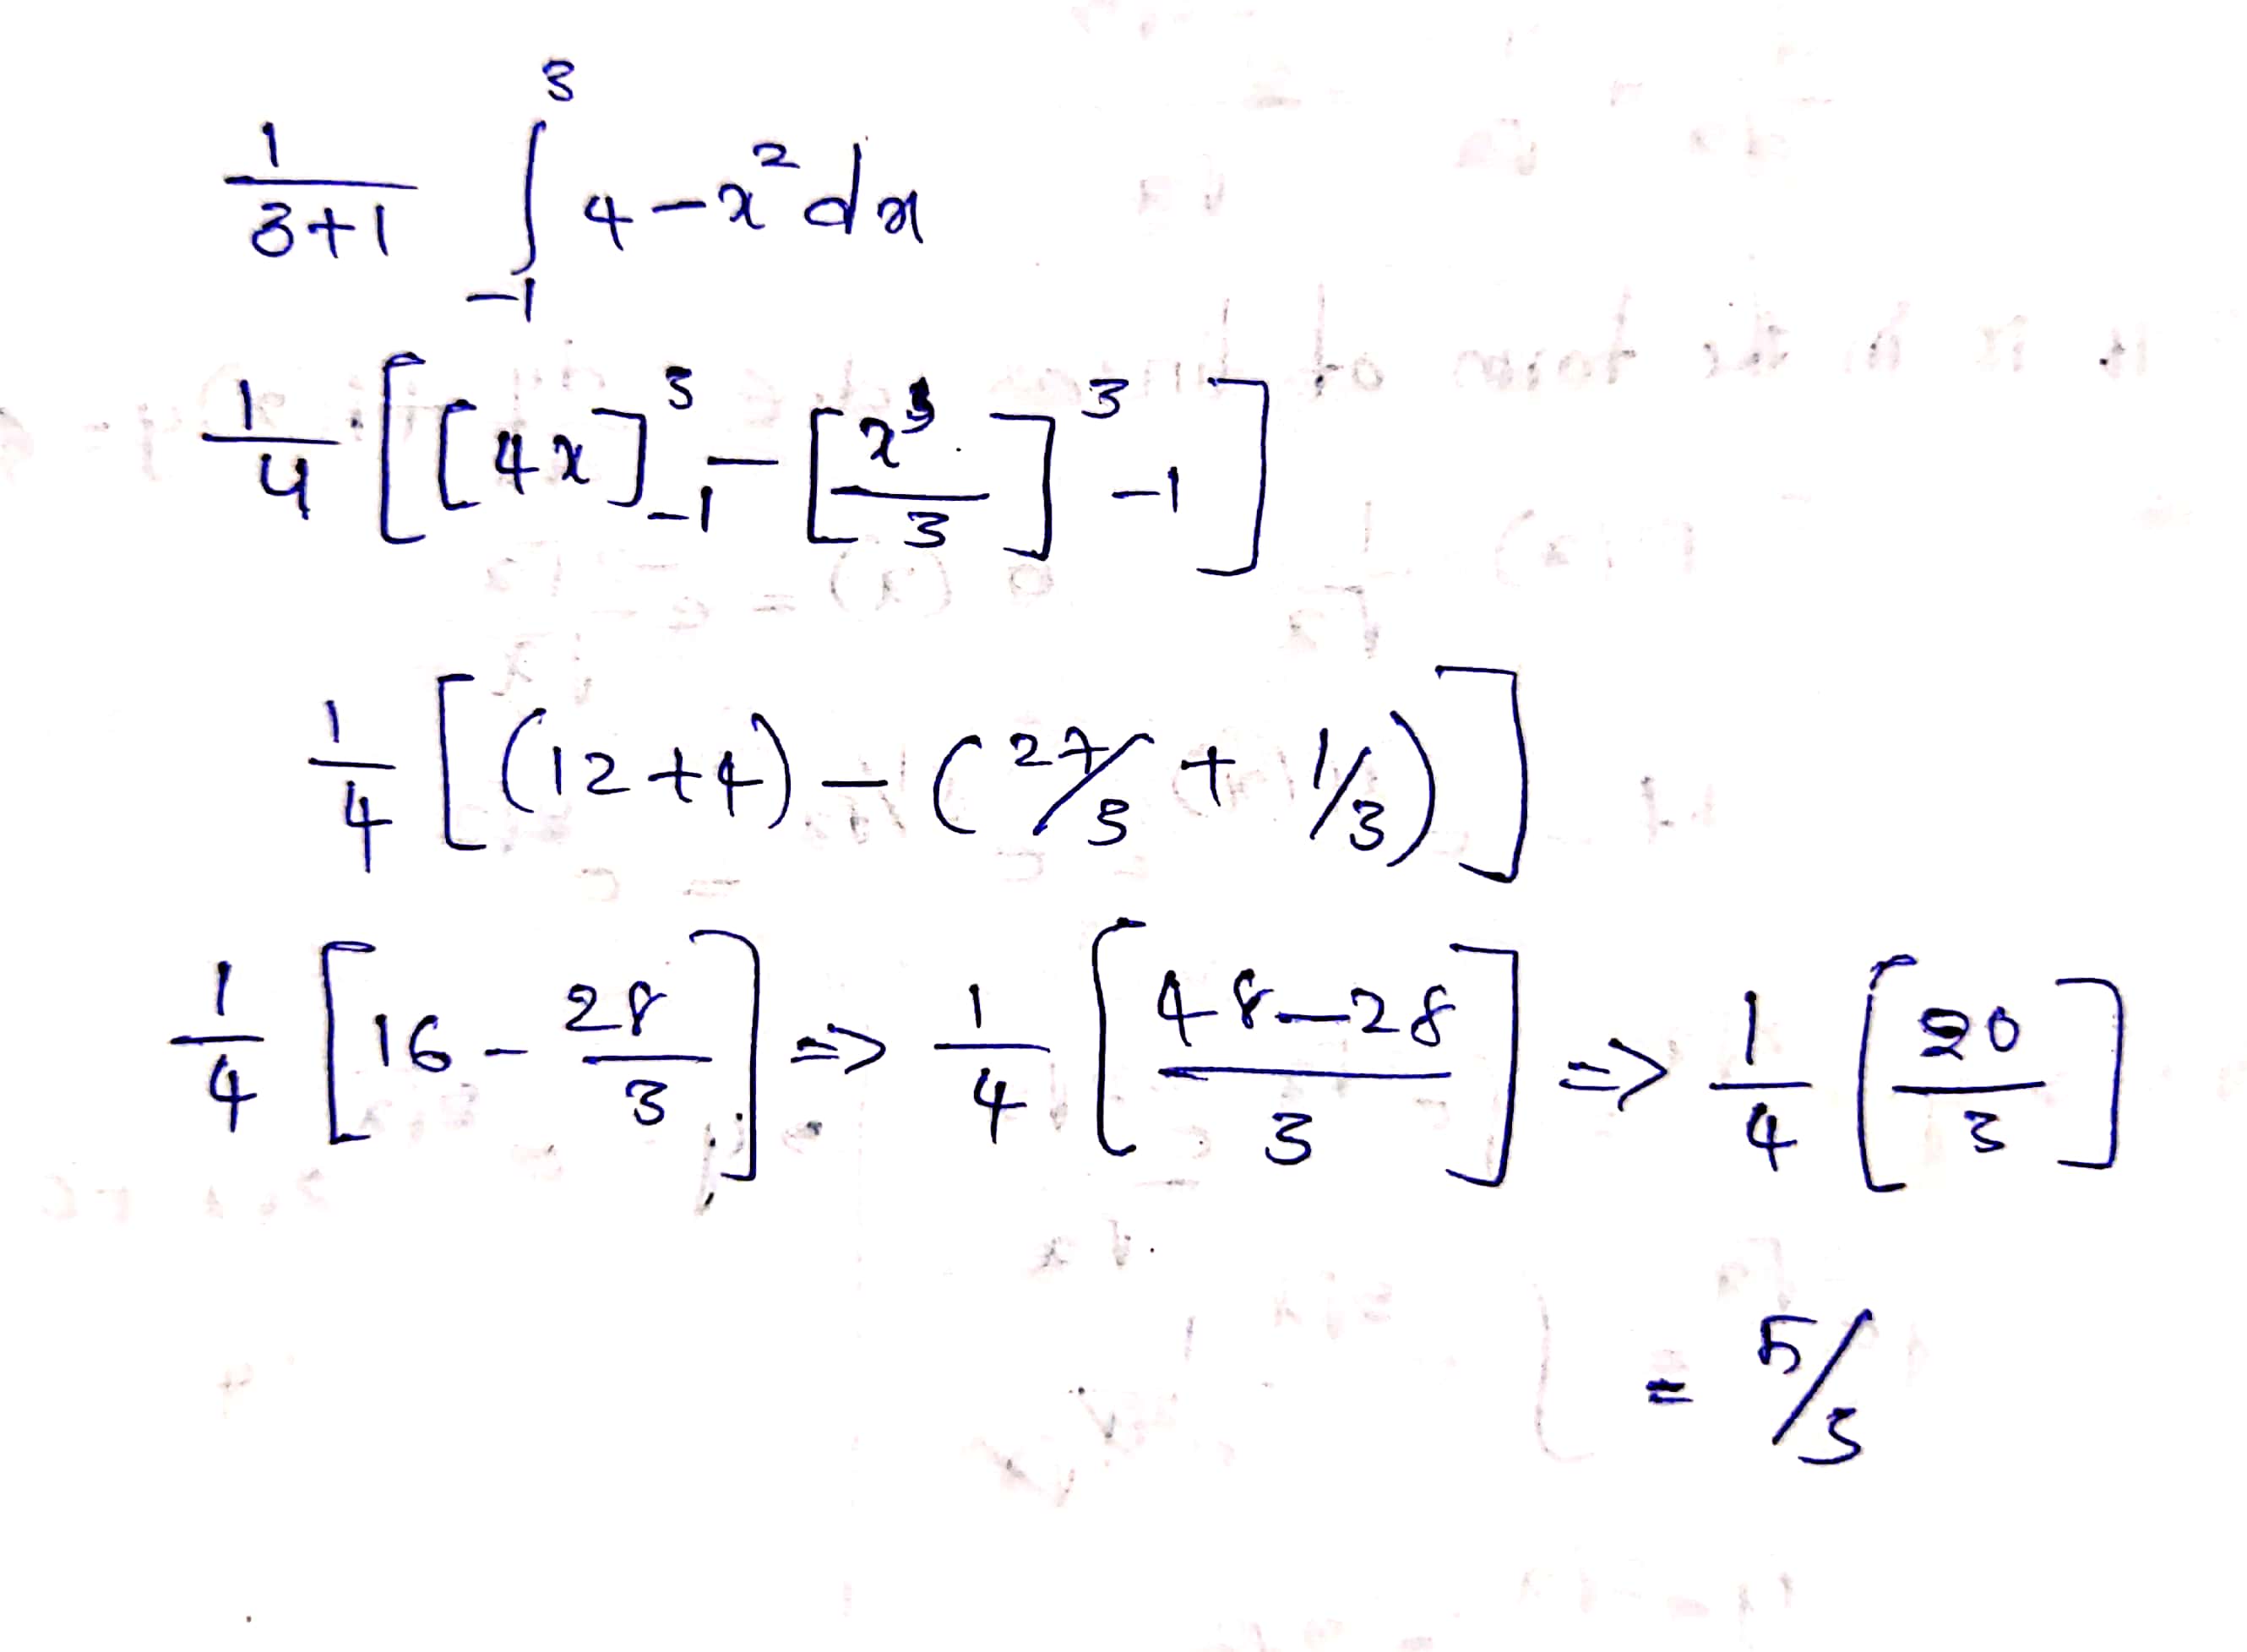 1/(3+1) ∫₋₁³ 4 − x² dx
1/4 [ [4x]³₋₁ − [x³/3]³₋₁ ]
1/4 [ (12 + 4) − (27/3 + 1/3) ]
1/4 [ 16 − 28/3 ] => 1/4 [ (48 − 28)/3 ] => 1/4 [ 20/3 ]
= 5/3